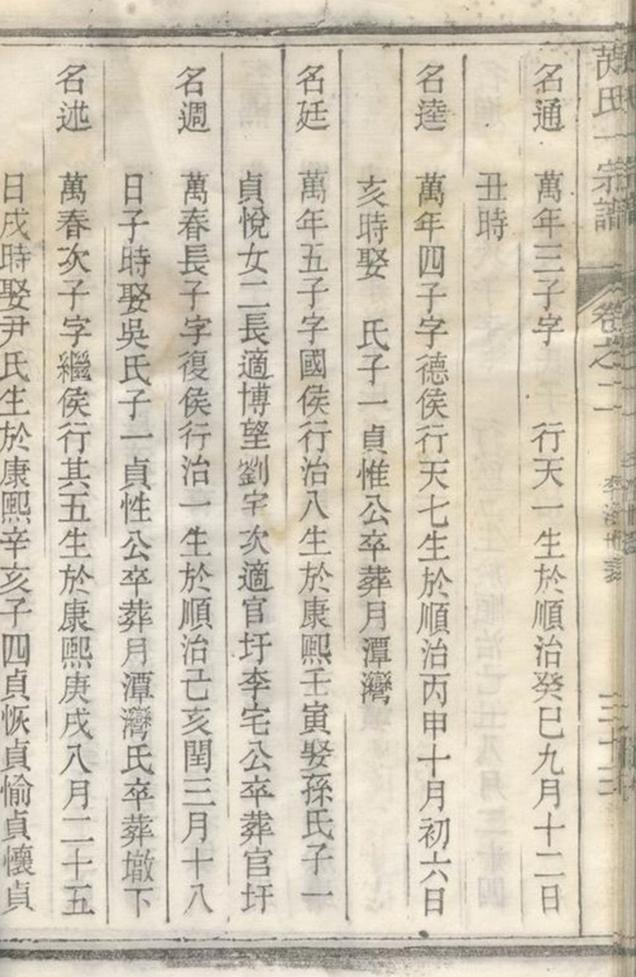 氏一宗譜 卷之二 三十三
名通 萬年三子字 行天一生於順治癸巳九月十二日
丑時
名逵 萬年四子字德侯行天七生於順治丙申十月初六日
亥時娶 氏子一貞惟公卒葬月潭灣
名廷 萬年五子字國侯行治八生於康熙壬寅娶孫氏子一
貞悅女二長適博望劉宅次適官圩李宅公卒葬官圩
名週 萬春長子字復侯行治一生於順治己亥閏三月十八
日子時娶吳氏子一貞性公卒葬月潭灣氏卒葬墩下
名述 萬春次子字繼侯行其五生於康熙庚戌八月二十五
日戌時娶尹氏生於康熙辛亥子四貞恢貞愉貞懷貞